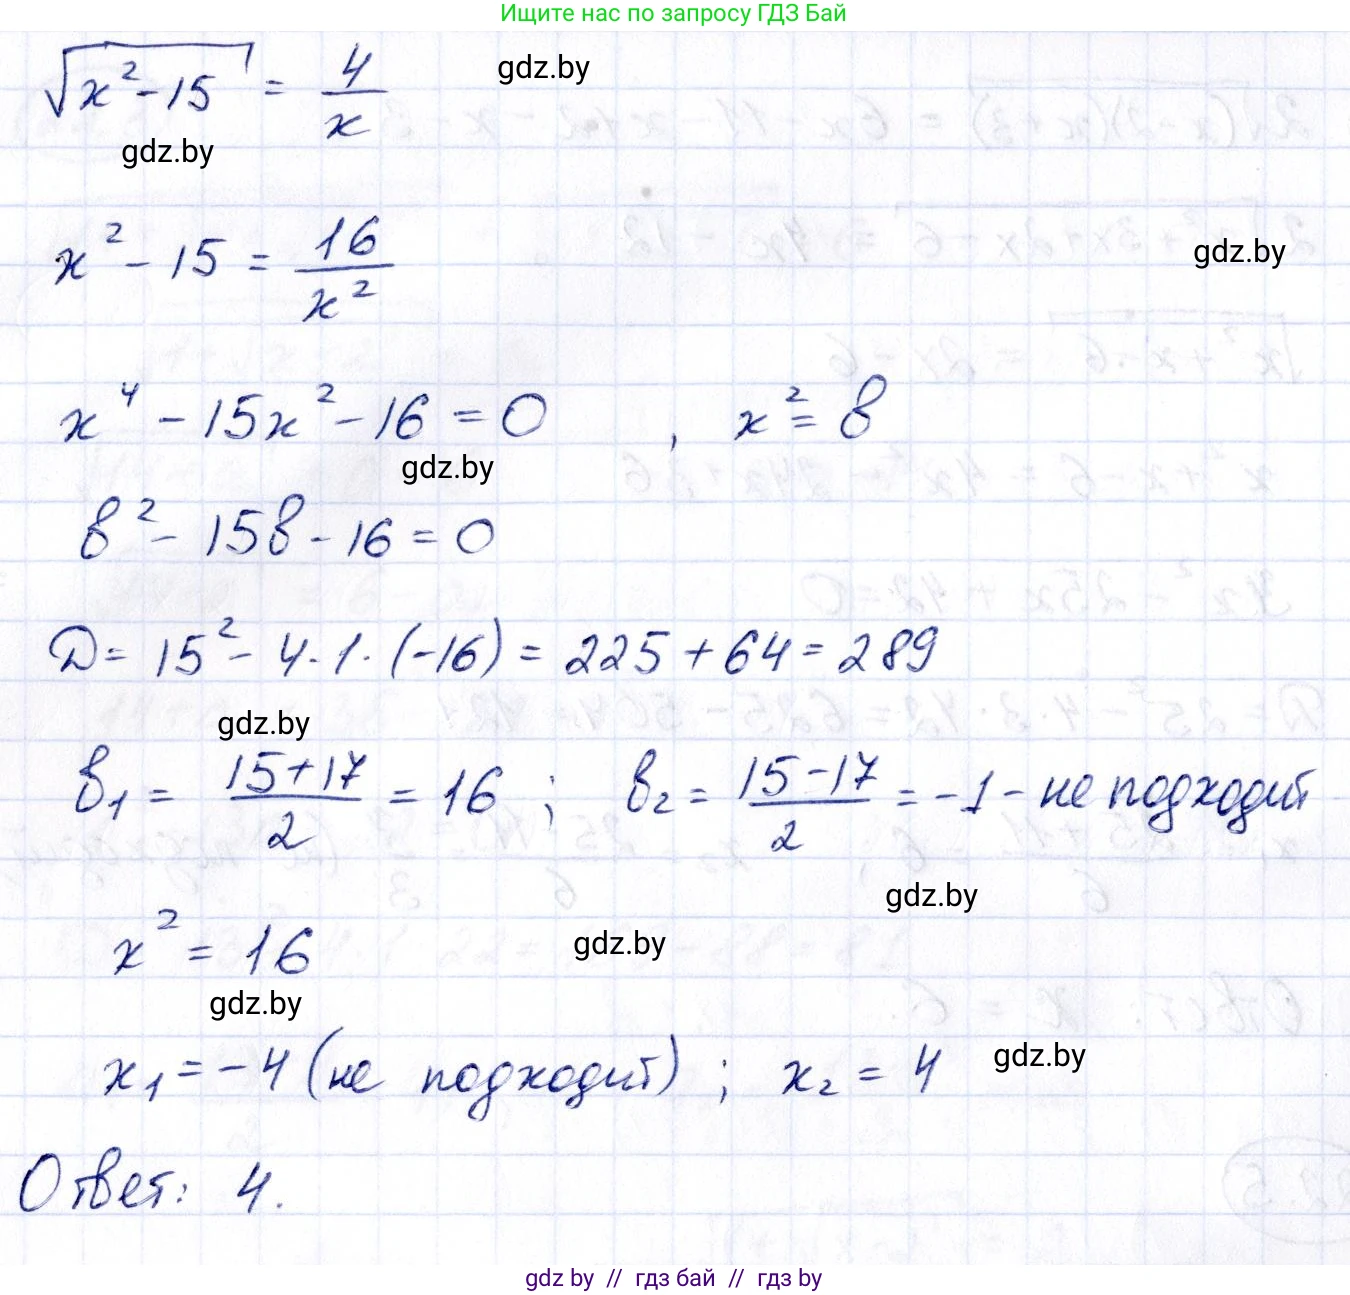 Ищите нас по запросу ГДЗ Бай
√(x² - 15) = 4/x
gdz.by
gdz.by
x² - 15 = 16/x²
gdz.by
x⁴ - 15x² - 16 = 0 , x² = в
gdz.by
в² - 15в - 16 = 0
D = 15² - 4 · 1 · (-16) = 225 + 64 = 289
gdz.by
в₁ = (15+17)/2 = 16 ; в₂ = (15-17)/2 = -1 - не подходит
gdz.by
x² = 16
gdz.by
gdz.by
x₁ = -4 (не подходит) ; x₂ = 4
gdz.by
Ответ: 4.
gdz by // гдз бай // гдз by